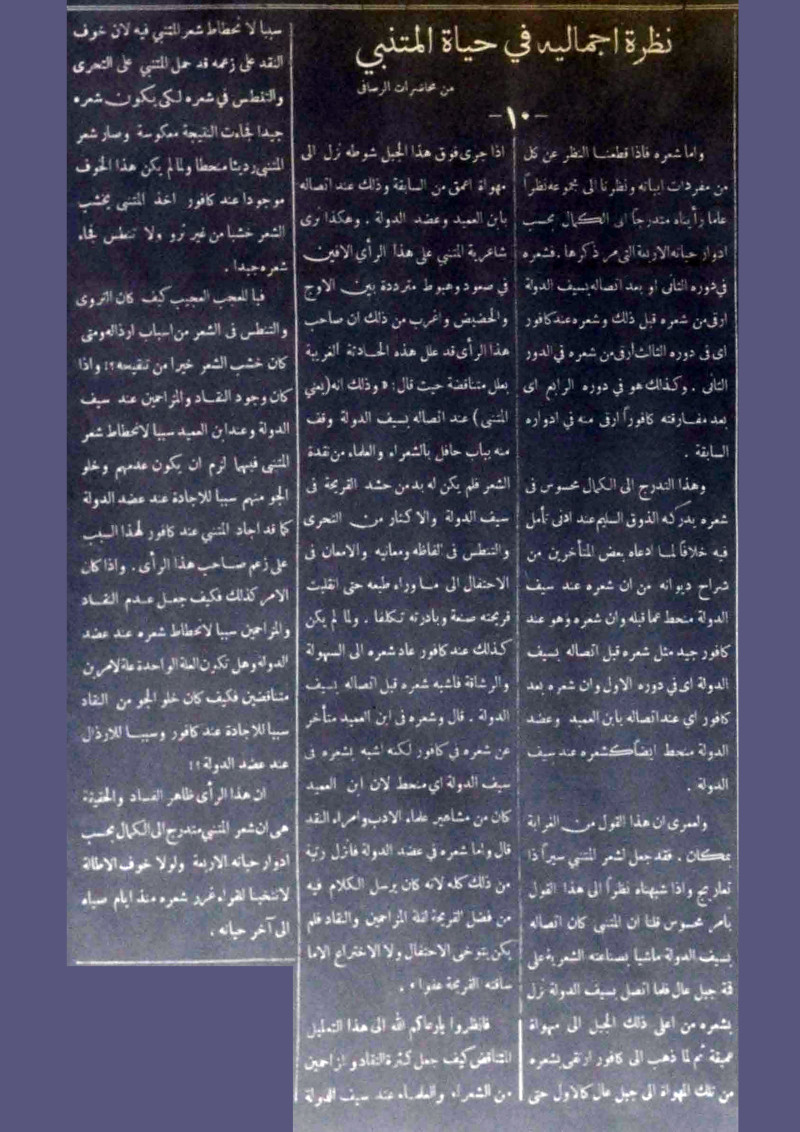 نظرة اجماليه في حياة المتنبي
من محاضرات الرصافى
-١٠-
واما شعره فاذا قطعنا النظر عن كل
من مفردات ابياته ونظرنا الى مجموعه نظراً
عاما رأيناه متدرجاً الى الكمال بحسب
ادوار حياته الاربعة التى مر ذكرها . فشعره
فى دوره الثانى او بعد اتصاله بسيف الدولة
ارقى من شعره قبل ذلك وشعره عند كافور
اى فى دوره الثالث أرقى من شعره فى الدور
الثانى . وكذلك هو فى دوره الرابع اى
بعد مفارقته كافوراً ارقى منه في ادواره
السابقة .
وهذا التدرج الى الكمال محسوس فى
شعره يدركه الذوق السليم عند ادنى تأمل
فيه خلافاً لما ادعاه بعض المتأخرين من
شراح ديوانه من ان شعره عند سيف
الدولة منحط عما قبله وان شعره وهو عند
كافور جيد مثل شعره قبل اتصاله بسيف
الدولة اى في دوره الاول وان شعره بعد
كافور اي عند اتصاله بابن العميد وعضد
الدولة منحط ايضاً كشعره عند سيف
الدولة .
ولعمرى ان هذا القول من الغرابة
بمكان . فقد جعل لشعر المتنبي سيراً ذا
تعاريج واذا شبهناه نظراً الى هذا القول
بامر محسوس قلنا ان المتنبى كان اتصاله
بسيف الدولة ماشيا بصناعته الشعرية على
قمة جبل عال فلما اتصل بسيف الدولة نزل
بشعره من اعلى ذلك الجبل الى مهواة
عميقة ثم لما ذهب الى كافور ارتقى بشعره
من تلك المهواة الى جبل عال كالاول حتى
اذا جرى فوق هذا الجبل شوطه نزل الى
مهواة اعمق من السابقة وذلك عند اتصاله
بابن العميد وعضد الدولة . وهكذا نرى
شاعرية المتنبي على هذا الرأى الافين
في صعود وهبوط مترددة بين الاوج
والحضيض واغرب من ذلك ان صاحب
هذا الرأى قد علل هذه الحادثة الغريبة
بعلل متناقضة حيث قال : « وذلك انه (يعني
المتنبى) عند اتصاله بسيف الدولة وقف
منه بباب حافل بالشعراء والعلماء من نقدة
الشعر فلم يكن له بد من حشد القريحة فى
سيف الدولة والاكثار من التحرى
والتنطس في الفاظه ومعانيه والامعان فى
الاحتفال الى ما وراء طبعه حتى انقلبت
قريحته صنعة وبادرته تكلفا . ولما لم يكن
كذلك عند كافور عاد شعره الى السهولة
والرشاقة فاشبه شعره قبل اتصاله بسيف
الدولة . قال وشعره فى ابن العميد متأخر
عن شعره في كافور لكنه اشبه بشعره فى
سيف الدولة اي منحط لان ابن العميد
كان من مشاهير علماء الادب وامراء النقد
قال واما شعره في عضد الدولة فانزل رتبة
من ذلك كله لانه كان يرسل الكلام فيه
من فضل القريحة لقلة المزاحمين والنقاد فلم
يكن يتوخى الاحتفال ولا الاختراع الا ما
ساقته القريحة عفوا » .
فانظروا يا رعاكم الله الى هذا التعليل
المتناقض كيف جعل كثرة النقاد والمزاحمين
من الشعراء والعلماء عند سيف الدولة
سببا لانحطاط شعر المتنبي فيه لان خوف
النقد على زعمه قد حمل المتنبي على التحرى
والتنطس في شعره لكى يكون شعره
جيدا فجاءت النتيجة معكوسة وصار شعر
المتنبى رديئا منحطا ولما لم يكن هذا الخوف
موجودا عند كافور اخذ المتنبي يخشب
الشعر خشبا من غير ترو ولا تنطس فجاء
شعره جيدا .
فيا للعجب العجيب كيف كان التروى
والتنطس فى الشعر من اسباب ارذاله ومتى
كان خشب الشعر خيرا من تنقيحه ؟! واذا
كان وجود النقاد والمزاحمين عند سيف
الدولة وعند ابن العميد سببا لانحطاط شعر
المتنبى فيهما لزم ان يكون عدمهم وخلو
الجو منهم سببا للاجادة عند عضد الدولة
كما قد اجاد المتنبي عند كافور لهذا السبب
على زعم صاحب هذا الرأى . واذا كان
الامر كذلك فكيف جعل عدم النقاد
والمزاحمين سببا لانحطاط شعره عند عضد
الدولة وهل تكون العلة الواحدة علة لامرين
متناقضين فكيف كان خلو الجو من النقاد
سببا للاجادة عند كافور وسببا للارذال
عند عضد الدولة ؟؟
ان هذا الرأى ظاهر الفساد والحقيقة
هى ان شعر المتنبي متدرج الى الكمال بحسب
ادوار حياته الاربعة ولولا خوف الاطالة
لانتخبنا للقراء غرر شعره منذ ايام صباه
الى آخر حياته .